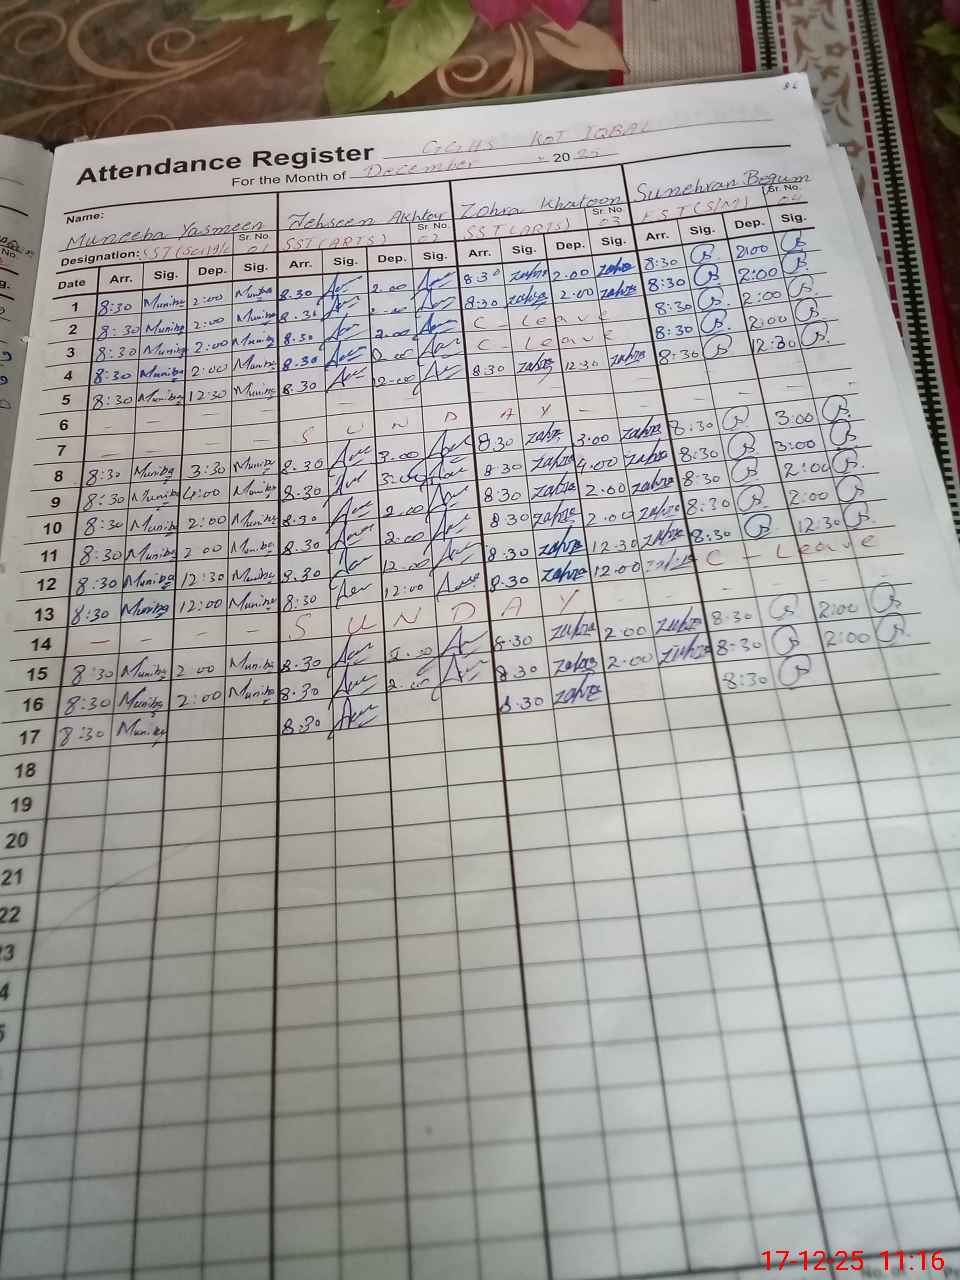 86
Attendance Register GGHS KOT IQBAL
For the Month of December 2025
Name: Muneeba Yasmeen Tehseen Akhtar Zohra Khatoon Sunehran Begum
Designation: SST (Sci) Sr. No. 01 SST (ARTS) Sr. No. 02 SST (ARTS) Sr. No. 03 EST (S/M) Sr. No. 04
Date Arr. Sig. Dep. Sig. Arr. Sig. Dep. Sig. Arr. Sig. Dep. Sig. Arr. Sig. Dep. Sig.
1 8:30 Muniba 2:00 Muniba 8.30 2.00 8:30 Zahra 2.00 Zahra 8:30 2:00
2 8:30 Muniba 2:00 Muniba 8.30 8:30 Zahra 2.00 Zahra 8:30 2:00
3 8:30 Muniba 2:00 Muniba 8.30 2.00 C - Leave 8:30 2:00
4 8:30 Muniba 2:00 Muniba 8.30 C - Leave 8:30 2:00
5 8:30 Muniba 12:30 Muniba 8.30 12.00 8:30 Zahra 12:30 Zahra 8:30 12:30
6 - - - -
7 - - - - S U N D A Y - -
8 8:30 Muniba 3:30 Muniba 8.30 3.00 8:30 Zahra 3:00 Zahra 8:30 3:00
9 8:30 Muniba 4:00 Muniba 8.30 8:30 Zahra 4.00 Zahra 8:30 3:00
10 8:30 Muniba 2:00 Muniba 8.30 2.00 8:30 Zahra 2.00 Zahra 8:30 2:00
11 8:30 Muniba 2:00 Muniba 8.30 2.00 8.30 Zahra 2.00 Zahra 8:30 2:00
12 8:30 Muniba 12:30 Muniba 8.30 12.00 8.30 Zahra 12.30 Zahra 8:30 12:30
13 8:30 Muniba 12:00 Muniba 8:30 12:00 8.30 Zahra 12.00 Zahra C - Leave
14 - - - - S U N D A Y - - - - -
15 8:30 Muniba 2:00 Muniba 8.30 8.30 Zahra 2.00 Zahra 8:30 2:00
16 8:30 Muniba 2:00 Muniba 8.30 2.00 8.30 Zahra 2.00 Zahra 8:30 2:00
17 8:30 Muniba 8:30 8.30 Zahra 8:30
18
19
20
21
22
17-12-25 11:16